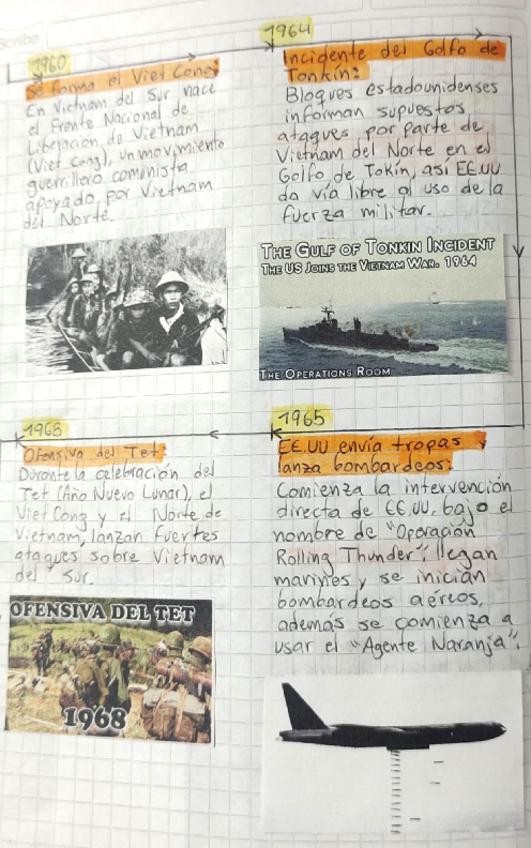 Scribe
1960
Se forma el Viet Cong:
En Vietnam del Sur nace
el Frente Nacional de
Liberación de Vietnam
(Viet Cong), un movimiento
guerrillero comunista
apoyado por Vietnam
del Norte.
1964
Incidente del Golfo de
Tonkín:
Bloques estadounidenses
informan supuestos
ataques por parte de
Vietnam del Norte en el
Golfo de Tokín, así EE.UU
da vía libre al uso de la
fuerza militar.
THE GULF OF TONKIN INCIDENT
THE US JOINS THE VIETNAM WAR. 1964
THE OPERATIONS ROOM
1965
EE.UU envía tropas y
lanza bombardeos.
Comienza la intervención
directa de EE.UU, bajo el
nombre de "Operación
Rolling Thunder", llegan
marines y se inician
bombardeos aéreos,
además se comienza a
usar el "Agente Naranja".
1963
Ofensiva del Tet:
Durante la celebración del
Tet (Año Nuevo Lunar), el
Viet Cong y el Norte de
Vietnam, lanzan fuertes
ataques sobre Vietnam
del Sur.
OFENSIVA DEL TET
1968